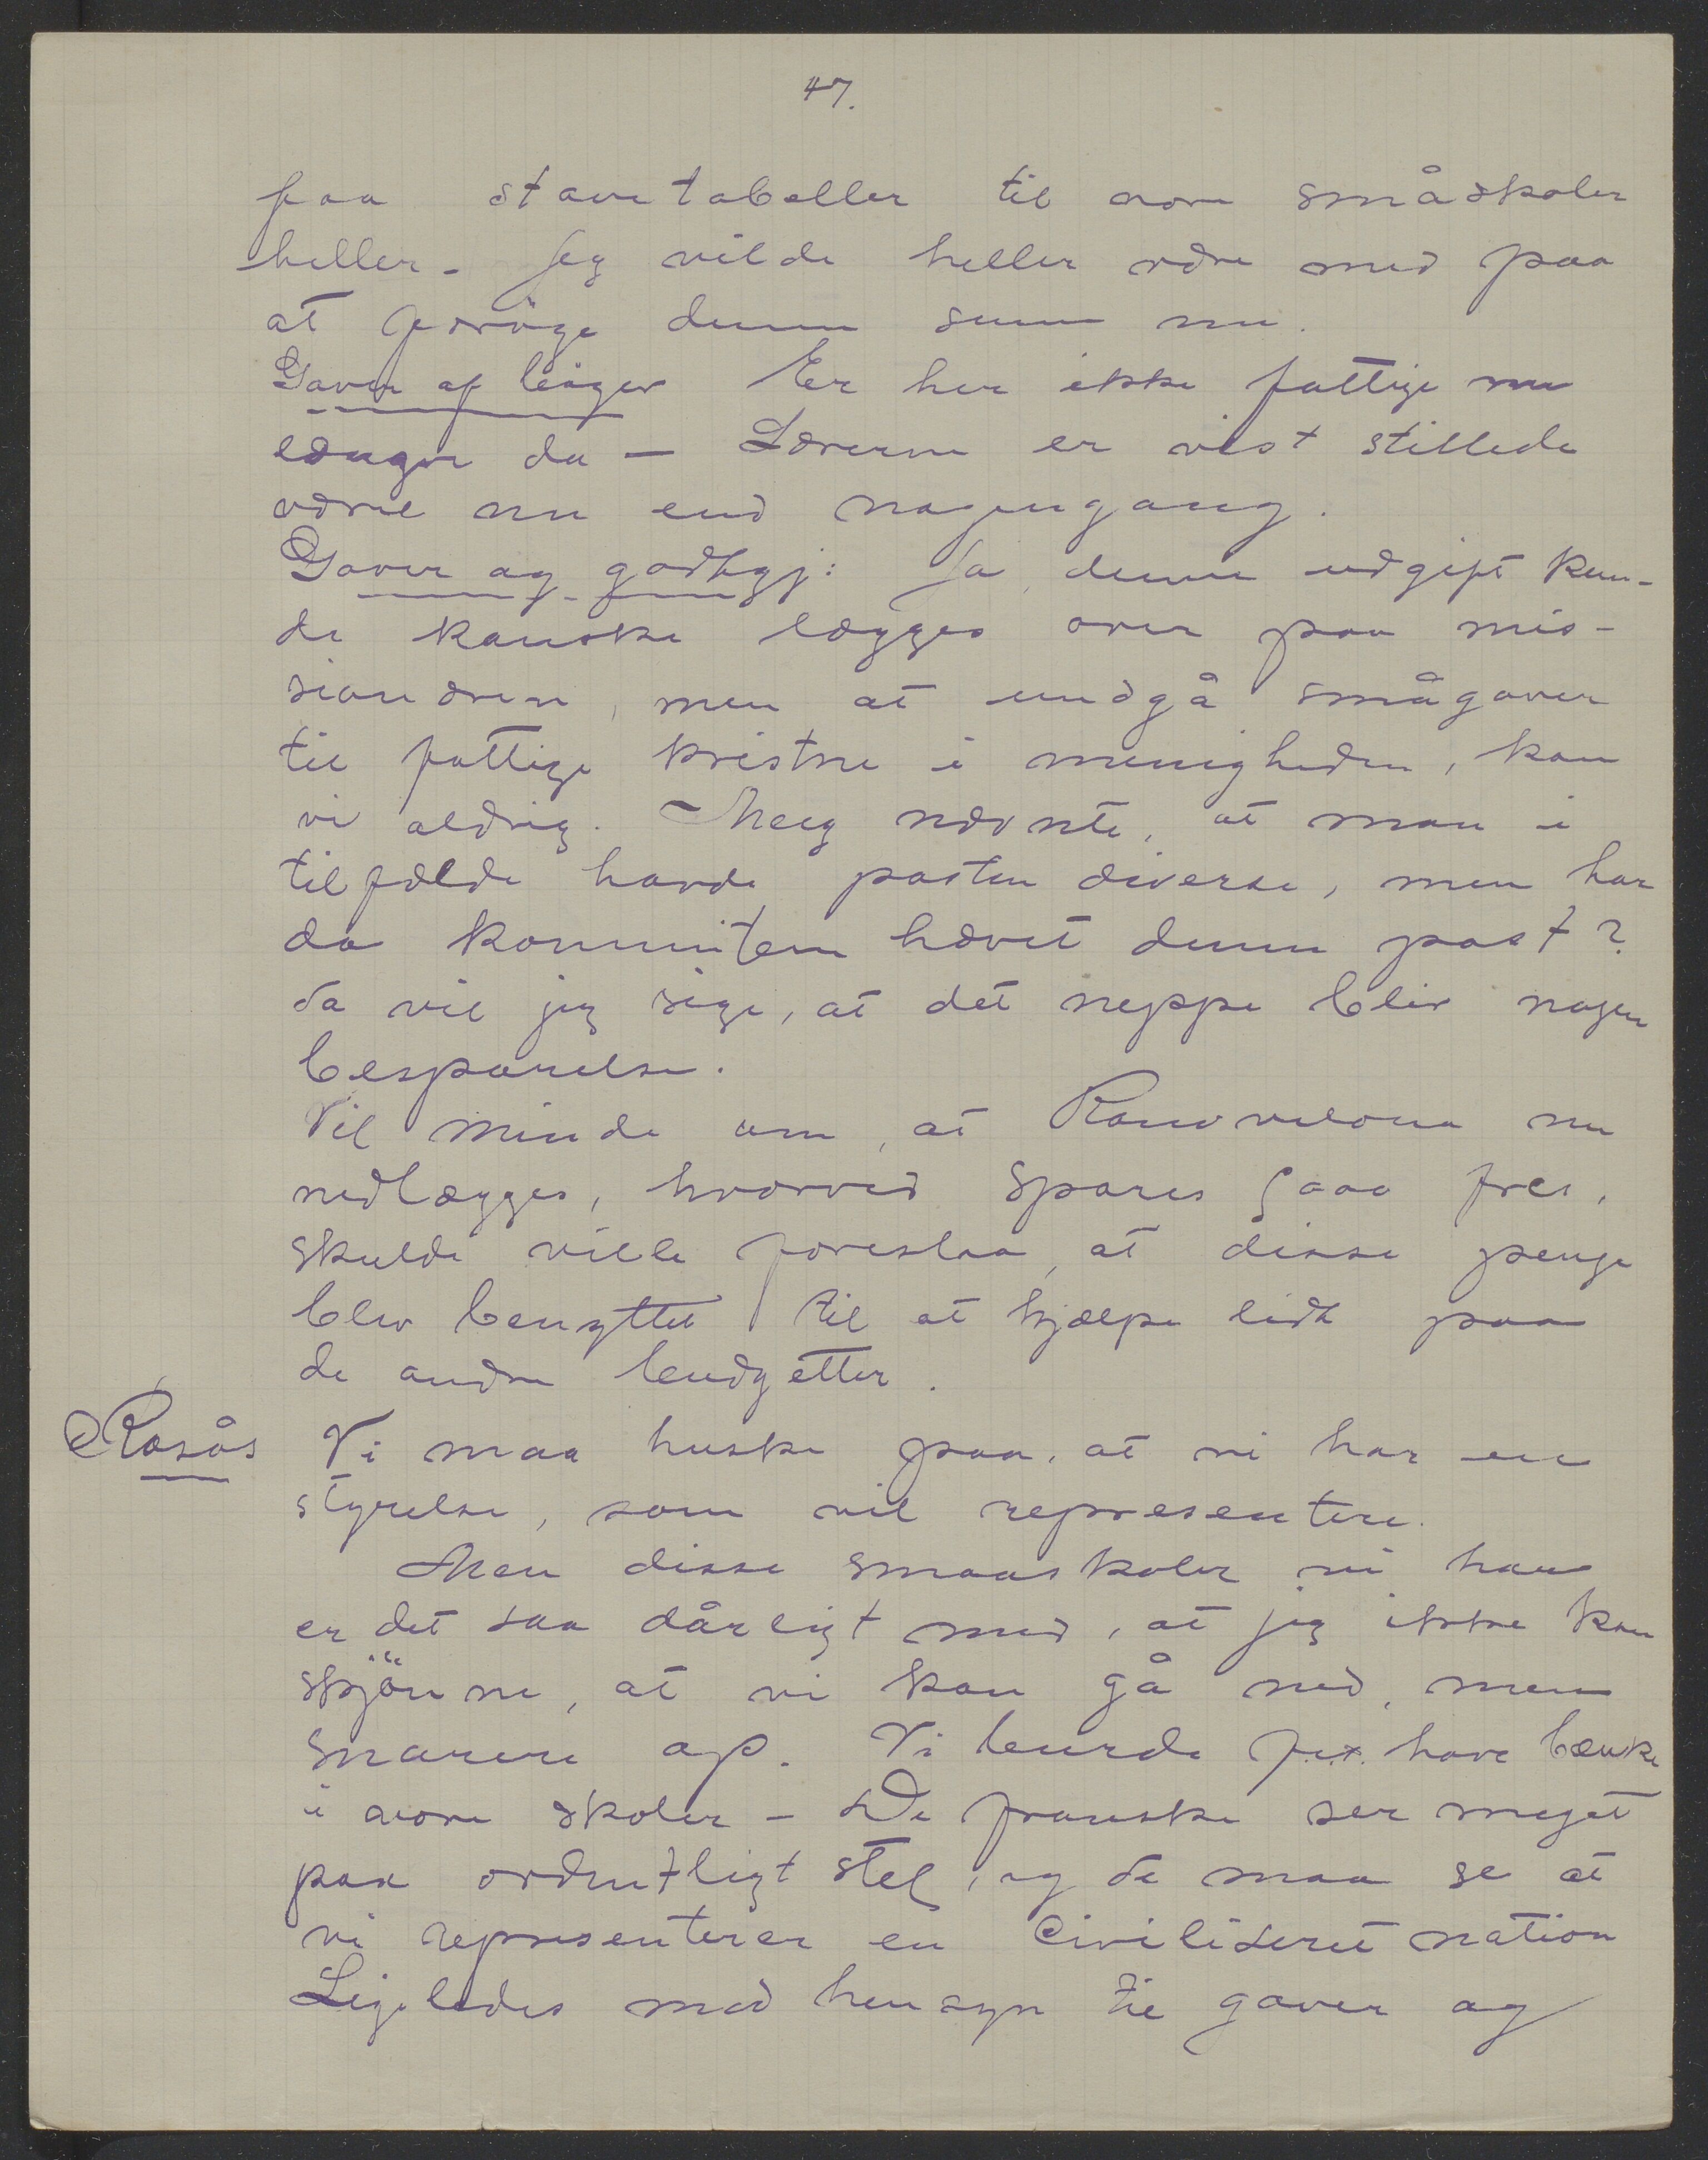 47.
faa stavetabeller til vore småskoler
heller. Jeg vilde heller være med paa
at forøge denne sum nu.
Gaver af bøger Er her ikke fattige nu
længer da — Lærerne er vist stillede
værre nu end nogengang.
Gaver og godtgj: Ja, denne udgift kun-
de kanske lægges over paa mis-
sionæren, men at undgå smågaver
til fattige kristne i menigheden, kan
vi aldrig. Meeg nævnte, at man i
tilfælde havde posten diverse, men har
da kommiteen hævet denne post?
Da vil jeg sige, at det neppe blir nogen
besparelse.
Vil minde om, at Ranovelona nu
nedlægges, hvorved spares 5000 frcs,
skulde ville foreslaa, at disse penge
blev benyttet til at hjælpe lidt paa
de andre budgetter.
Rosås Vi maa huske paa, at vi har en
styrelse, som vil representere.
Men disse smaaskoler vi har
er det saa dårligt med, at jeg ikke kan
skjönne, at vi kan gå ned, men
snarere op. Vi burde f.ex. have bænke
i vore skoler — De franske ser meget
paa ordentligt stel, og de maa se at
vi representerer en civiliseret nation
Ligeledes med hensyn til gaver og